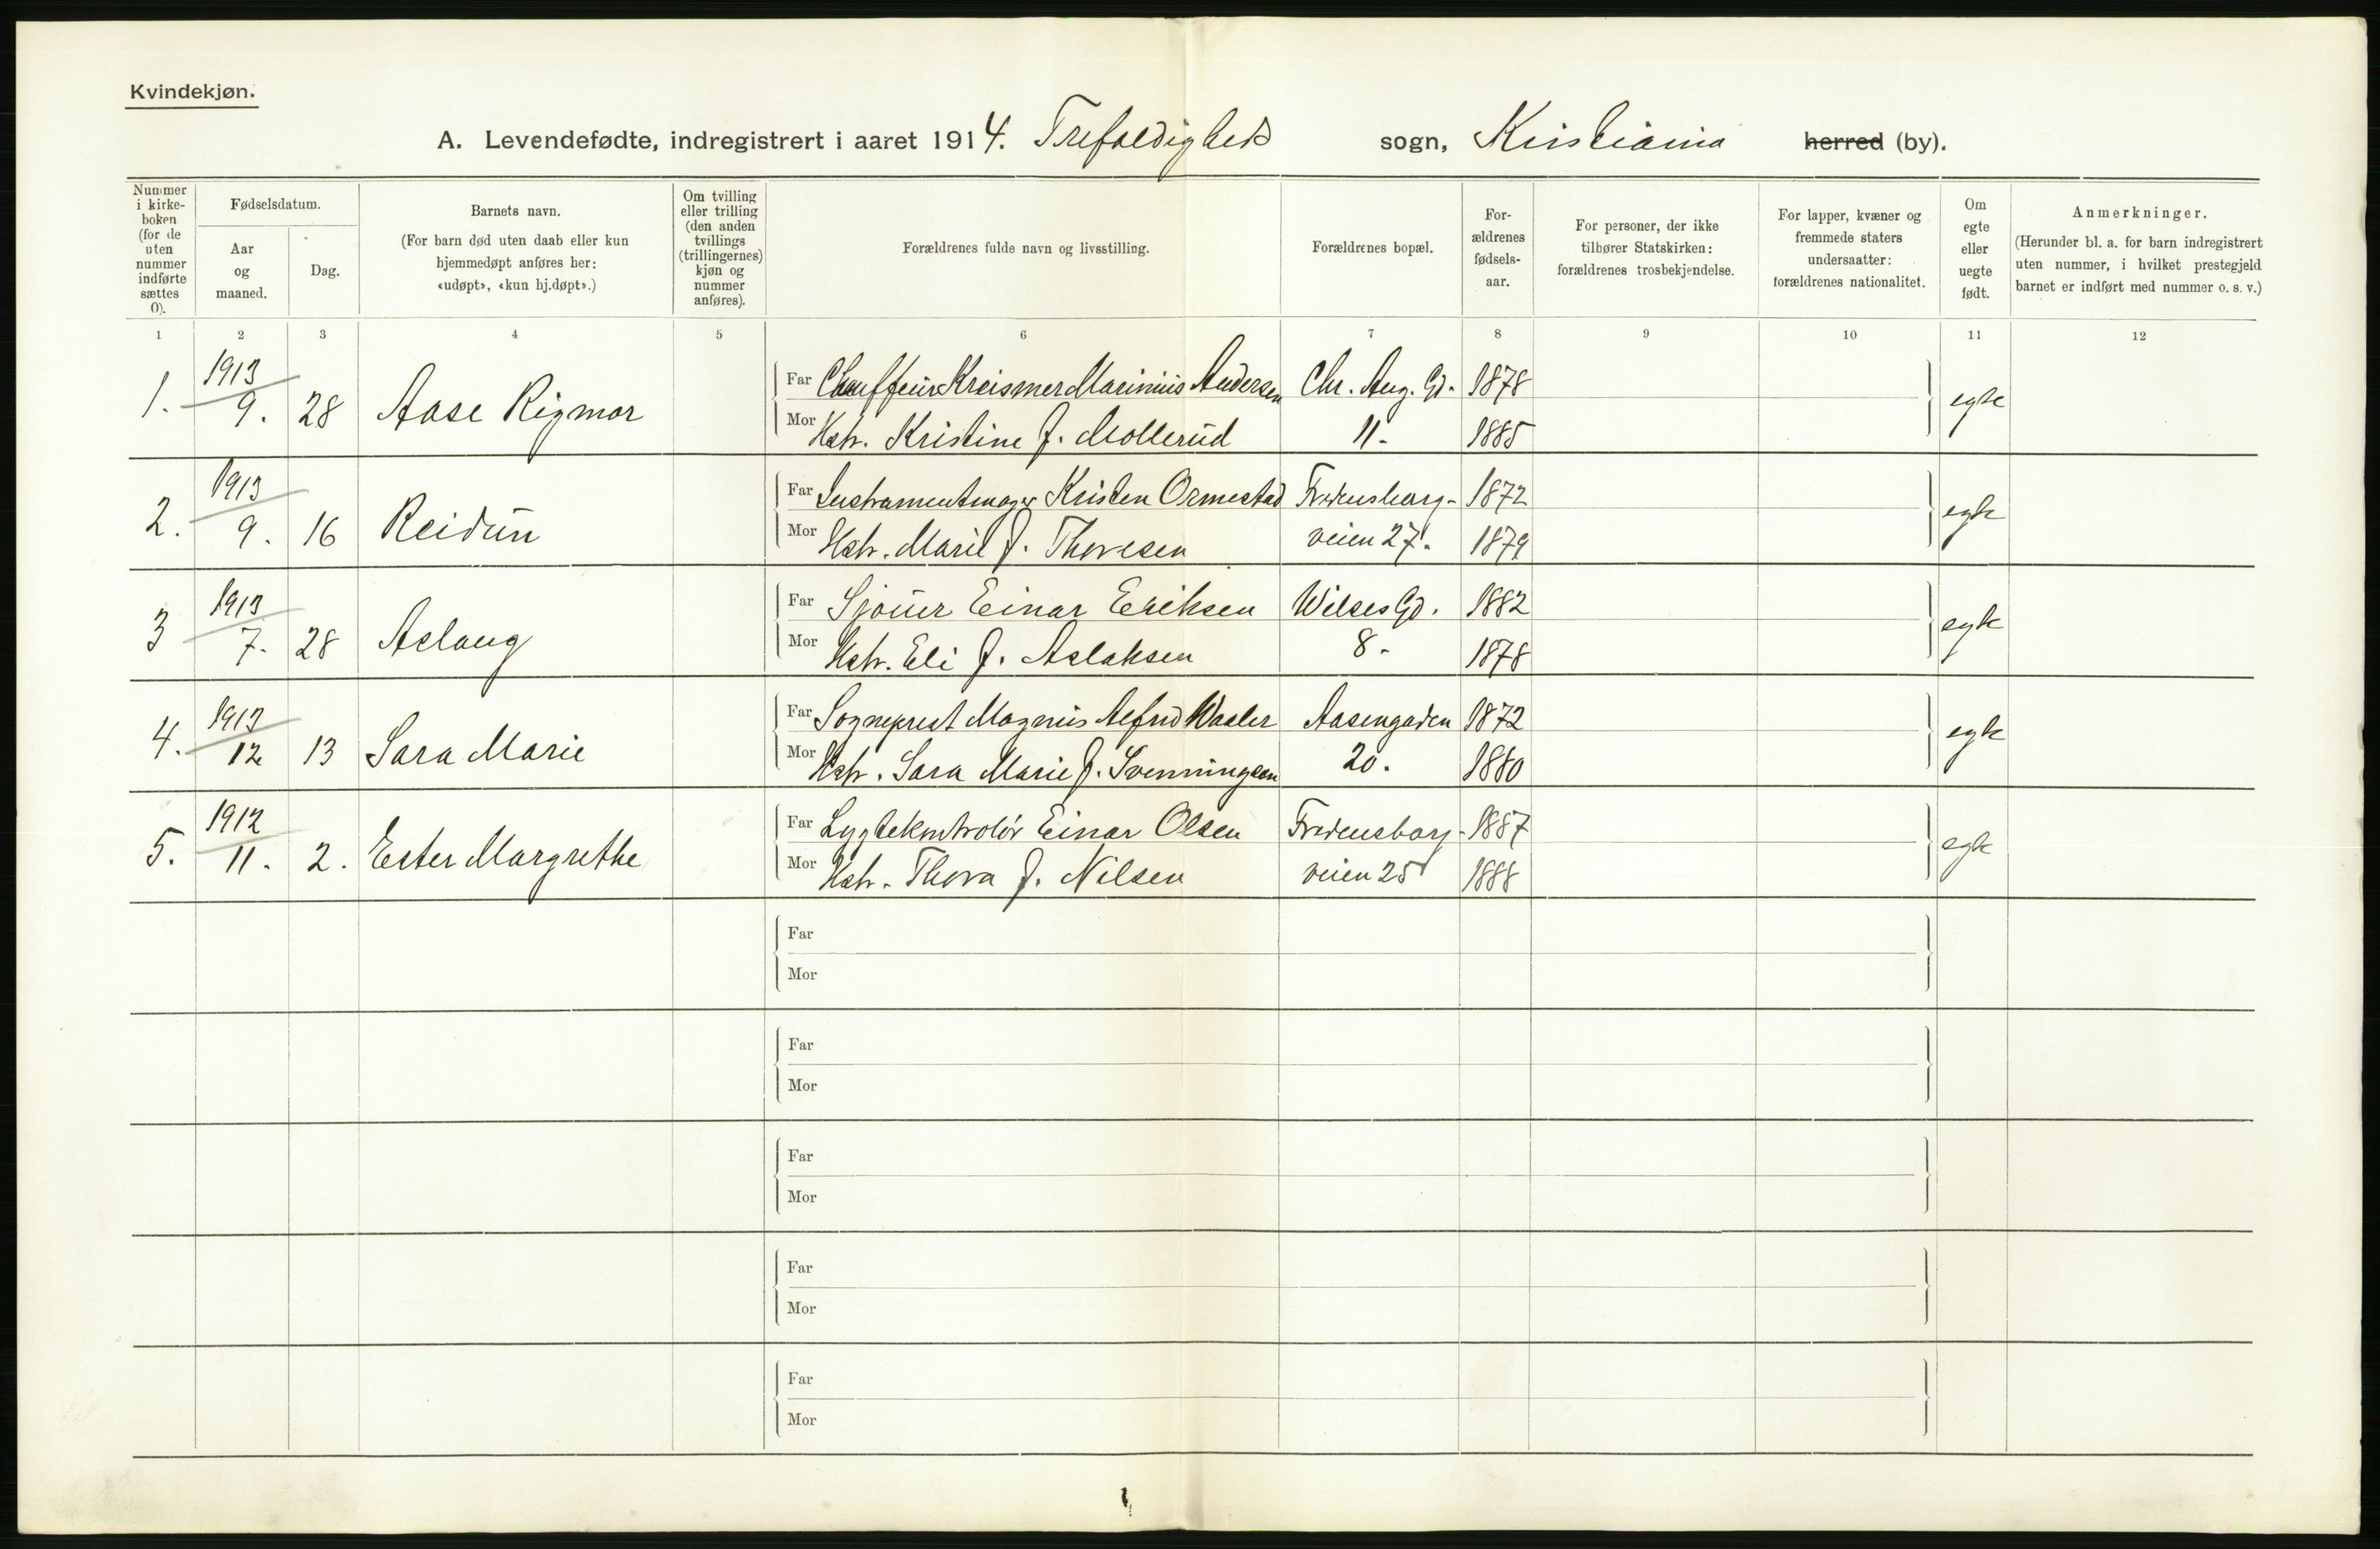 Kvindekjøn.
A. Levendefødte, indregistrert i aaret 1914. Trefoldigheds sogn, Kristiania herred (by).
Nummer i kirkeboken (for de uten nummer indførte sættes 0).
Fødselsdatum.
Aar og maaned.
Dag.
Barnets navn.
(For barn død uten daab eller kun hjemmedøpt anføres her: «udøpt», «kun hj.døpt».)
Om tvilling eller trilling (den anden tvillings (trillingernes) kjøn og nummer anføres).
Forældrenes fulde navn og livsstilling.
Forældrenes bopæl.
Forældrenes fødselsaar.
For personer, der ikke tilhører Statskirken: forældrenes trosbekjendelse.
For lapper, kvæner og fremmede staters undersaatter: forældrenes nationalitet.
Om egte eller uegte født.
Anmerkninger.
(Herunder bl. a. for barn indregistrert uten nummer, i hvilket prestegjeld barnet er indført med nummer o. s. v.)
1 2 3 4 5 6 7 8 9 10 11 12
1. 1913 9. 28 Aase Rigmor Far Chauffeur Kreismer Marinius Andersen Chr. Aug. Gd. 1878 egte
Mor Hstr. Kristine f. Mollerud 11. 1885
2. 1913 9. 16 Reidun Far Instrumentmager Kristen Ormestad Fredensborg- 1872 egte
Mor Hstr. Marie f. Thoresen veien 27. 1879
3 1913 7. 28 Aslaug Far Sjouer Einar Eriksen Wilses Gd. 1882 egte
Mor Hstr. Eli f. Aslaksen 8. 1878
4. 1913 12 13 Sara Marie Far Sogneprest Magnus Alfred Waaler Aasengaden 1872 egte
Mor Hstr. Sara Marie f. Svenningsen 20. 1880
5. 1912 11. 2. Ester Margrethe Far Lygtekontrolör Einar Olsen Fredensborg- 1887 egte
Mor Hstr. Thora f. Nilsen veien 25 1888
Far
Mor
Far
Mor
Far
Mor
Far
Mor
Far
Mor